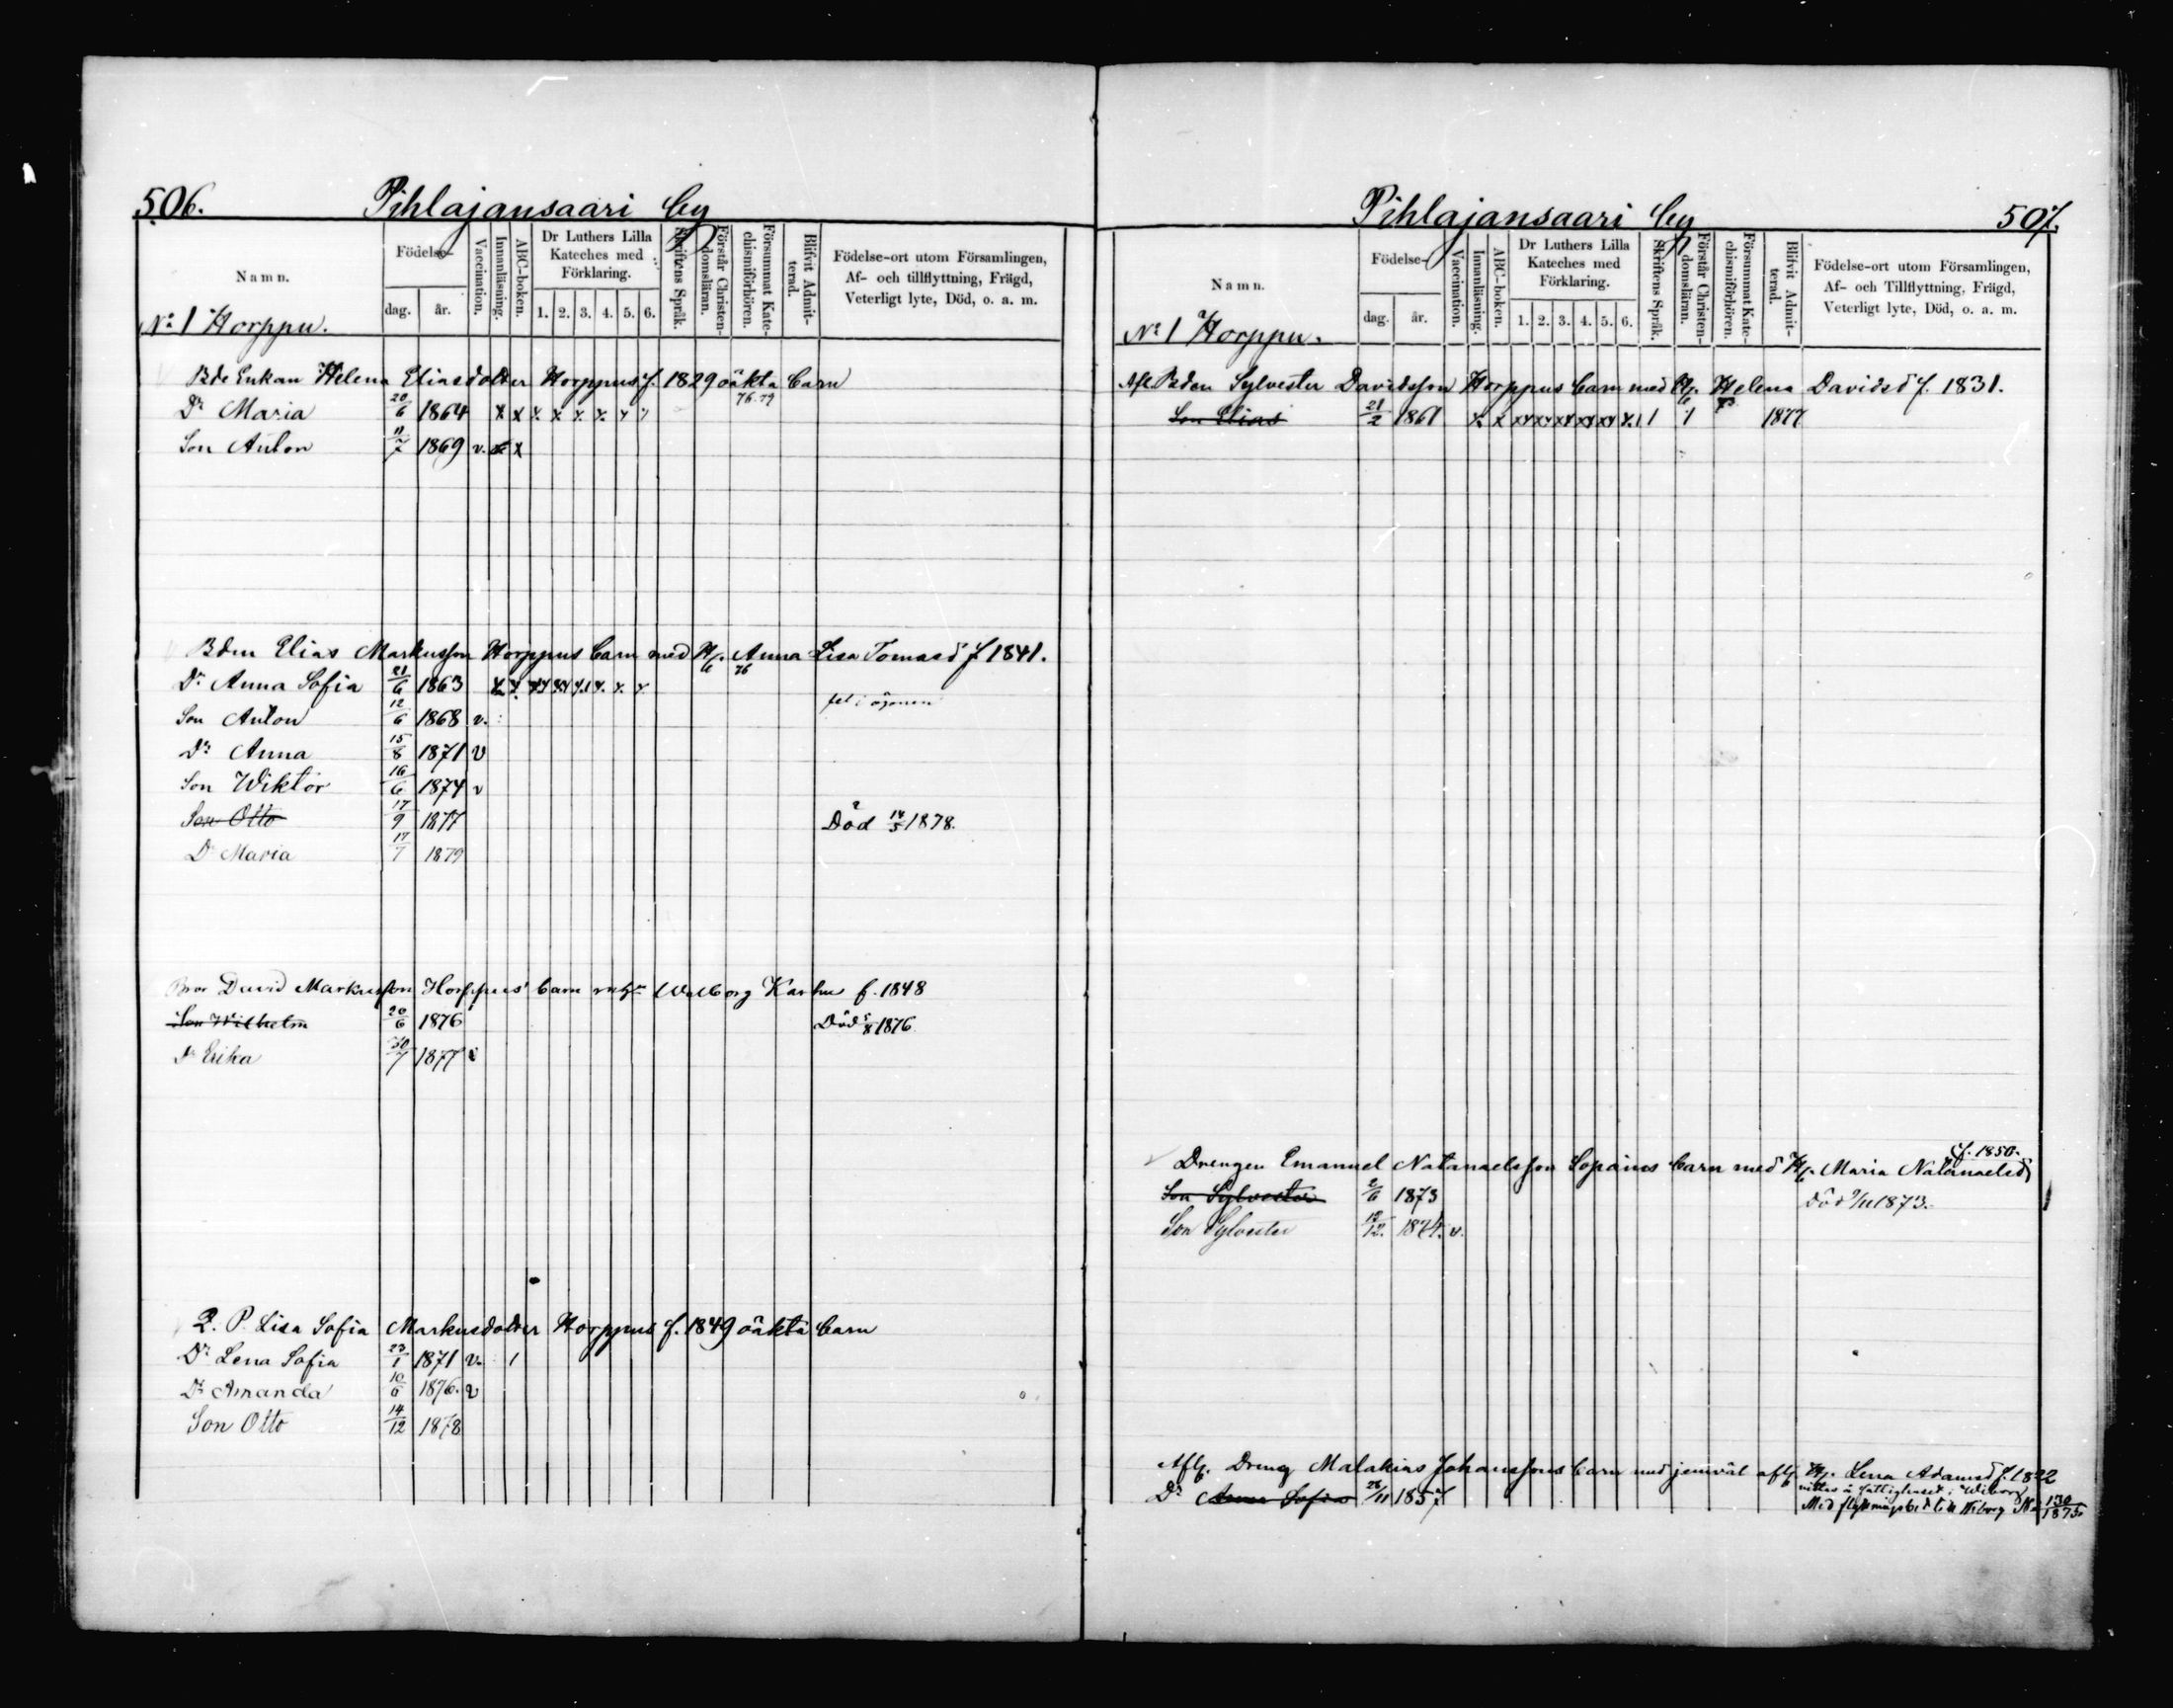 506. Pihlajansaari by
Namn.
Födelse-
dag. år.
Vaccination.
Innanläsning.
ABC-boken.
Dr Luthers Lilla Kateches med Förklaring.
1. 2. 3. 4. 5. 6.
Skriftens Språk.
Förstår Christen-domsläran.
Försummat Kate-chismiförhören.
Blifvit Admit-terad.
Födelse-ort utom Församlingen,
Af- och tillflyttning, Frägd,
Veterligt lyte, Död, o. a. m.
No 1 Horppu.
Bde Enkan Helena Eliasdotter Horppus f. 1829 oäkta barn
Dr Maria 20/6 1864 x x x x x x x x 76. 79
Son Anton 11/7 1869 v. x x
Bden Elias Markusson Horppus barn med H. Anna Lisa Tomasd f 1841.
Dr Anna Sofia 21/6 1863 76
fel i ögonen
Son Anton 12/6 1868 v.
Dr Anna 15/8 1871 v
Son Wiktor 16/6 1874 v
Son Otto 17/9 1877 Död 14/5 1878.
Dr Maria 17/7 1879
Bror David Markusson Horppus' barn m h Walborg Karhu f. 1848
Son Wilhelm 20/6 1876 Död 5/8 1876
Dr Erika 30/7 1877 v
2. P. Lisa Sofia Markusdotter Horppus f. 1849 oäkta barn
Dr Lena Sofia 23/1 1871 v. 1
Dr Amanda 10/6 1876. v
Son Otto 14/12 1878
Pihlajansaari by 507.
Namn.
Födelse-
dag. år.
Vaccination.
Innanläsning.
ABC-boken.
Dr Luthers Lilla Kateches med Förklaring.
1. 2. 3. 4. 5. 6.
Skriftens Språk.
Förstår Christen-domsläran.
Försummat Kate-chismiförhören.
Blifvit Admit-terad.
Födelse-ort utom Församlingen,
Af- och Tillflyttning, Frägd,
Veterligt lyte, Död, o. a. m.
No 1 Horppu.
Afl. Bden Sylvester Davidsson Horppus barn med H. Helena Davidsd f. 1831.
Son Elias 21/2 1861 73 1877
f. 1850.
Drengen Emanuel Natanaelsson Sopains barn med H. Maria Natanaelsd
Son Sylvester 2/6 1873 Död 9/11 1873.
Son Sylvester 18/12. 1874. v.
Aflg. Dreng Malakias Johanssons barn med jemväl aflg. H. Lena Adamsd f. 1822
vistas å fattighuset i Wiborg
Dr Anna Sofia 26/11 1857 Med flyttningsbet till Wiborg No 130/1875.